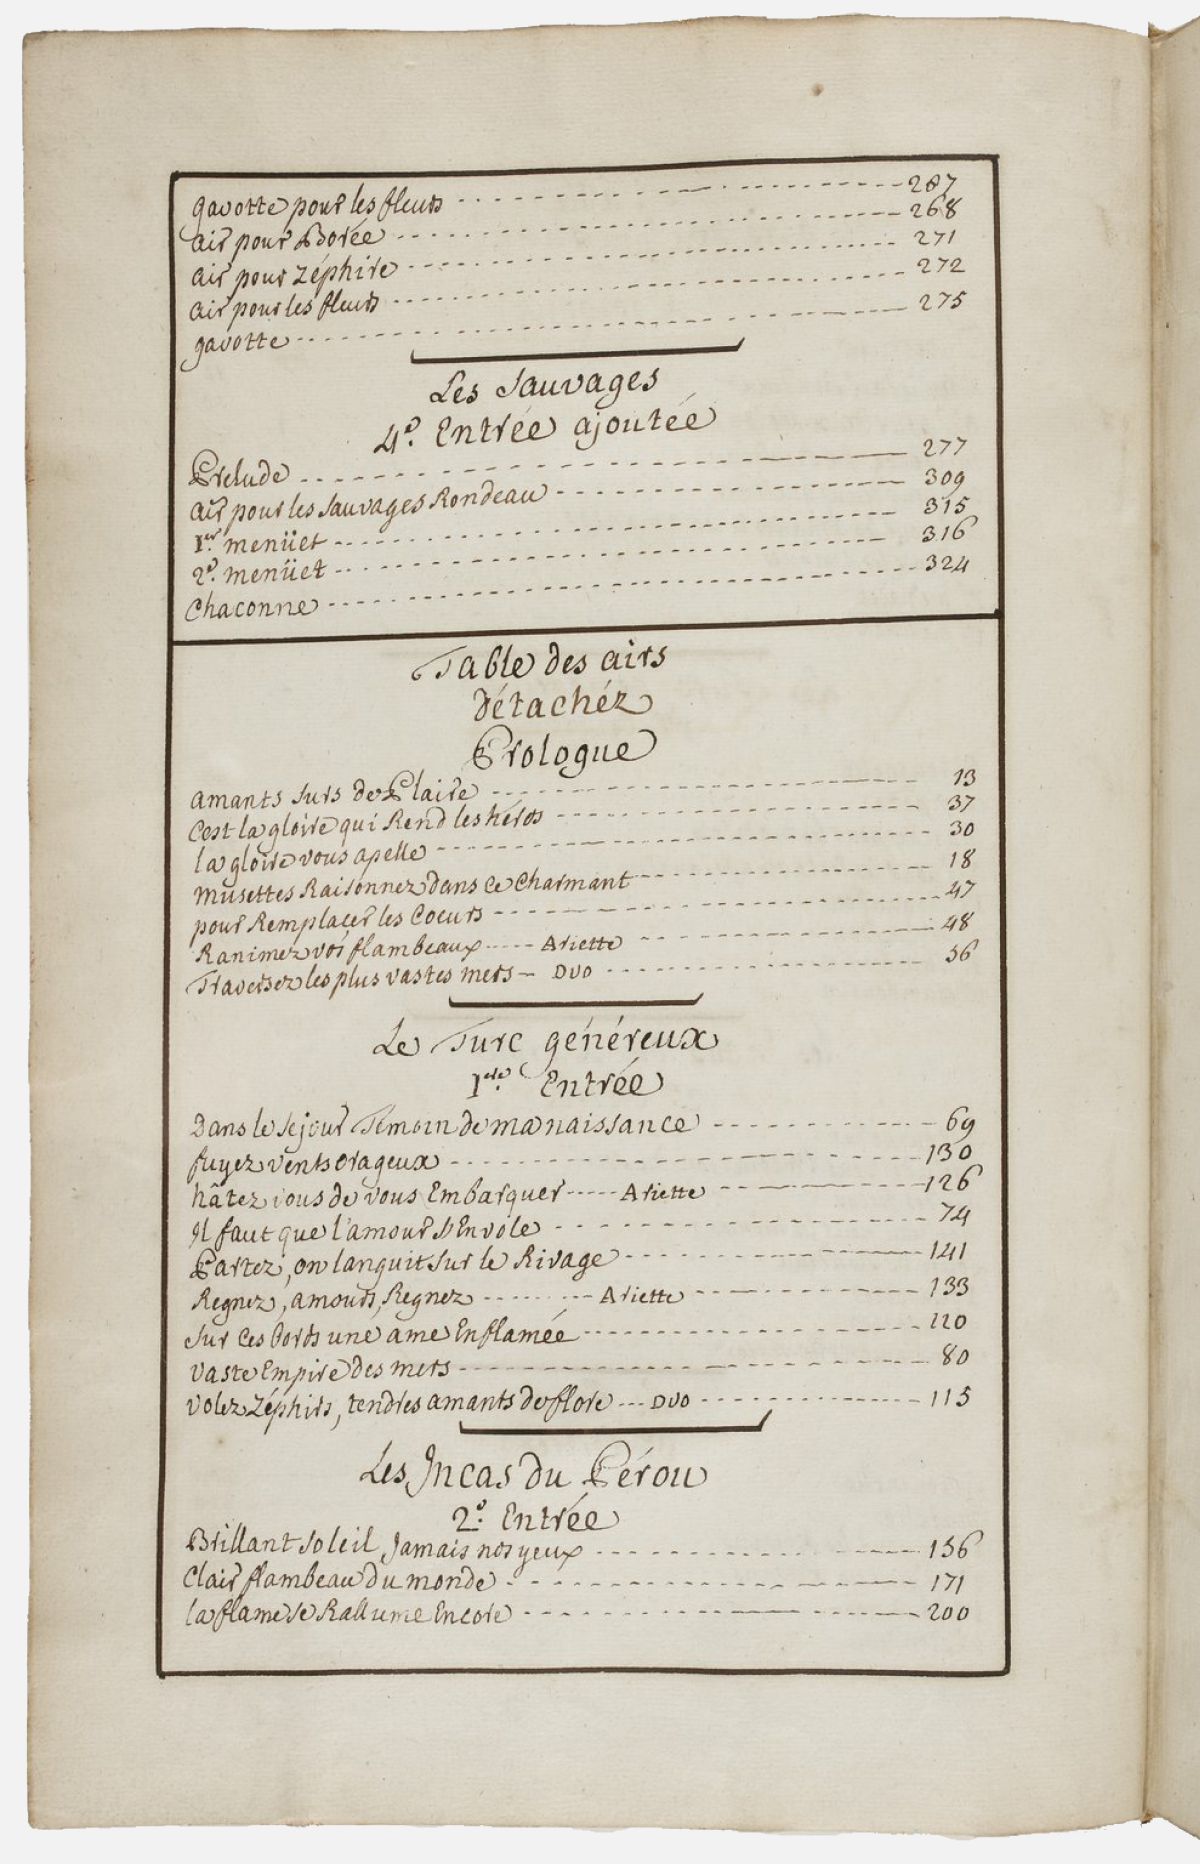 gavotte pour les fleurs 287
air pour Borée 268
air pour zéphire 271
air pour les fleurs 272
gavotte 275
Les Sauvages
4e. Entrée ajoutée
Prelude 277
air pour les Sauvages Rondeau 309
1er. menüet 315
2e. menüet 316
Chaconne 324
Table des airs
détachéz
Prologue
amants surs de Plaire 13
C'est la gloire qui Rend les héros 37
la gloire vous apelle 30
musettes Raisonnez dans ce charmant 18
pour Remplacer les Coeurs 47
Ranimez vos flambeaux Ariette 48
Traversez les plus vastes mers DUO 56
Le Turc généreux
1ere. Entrée
Dans le sejour Témoin de ma naissance 69
fuyez vents orageux 130
hâtez vous de vous Embarquer Ariette 126
Il faut que l'amour s'Envole 74
Partez, on languit sur le Rivage 141
Regnez, amours, Regnez Ariette 133
Sur ces bords une ame Enflamée 110
vaste Empire des mers 80
volez zéphirs, tendres amants de flore DUO 115
Les Incas du Pérou
2e. Entrée
Brillant soleil, Jamais nos yeux 156
Clair flambeau du monde 171
la flame se Rallume Encore 200